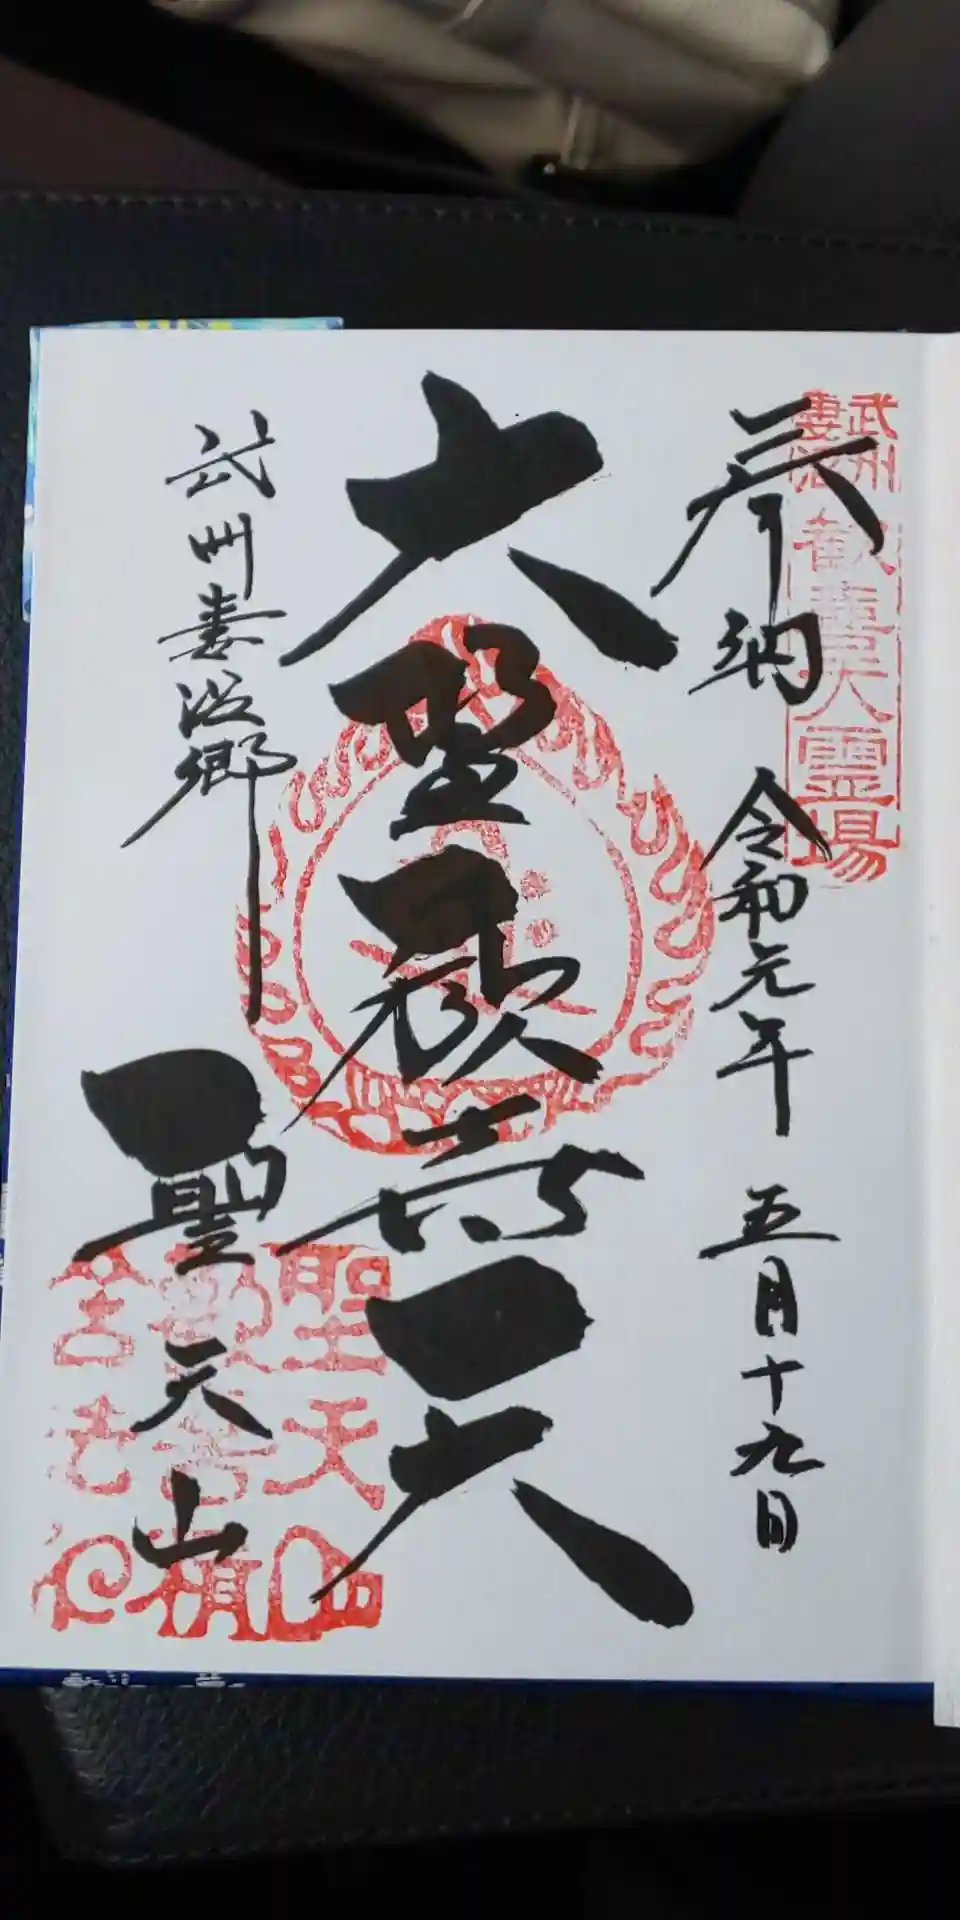 武州
妻沼
歓喜天霊場
奉納 令和元年 五月十九日
大聖歓喜天
武州妻沼郷
聖天山
聖天山
歓喜